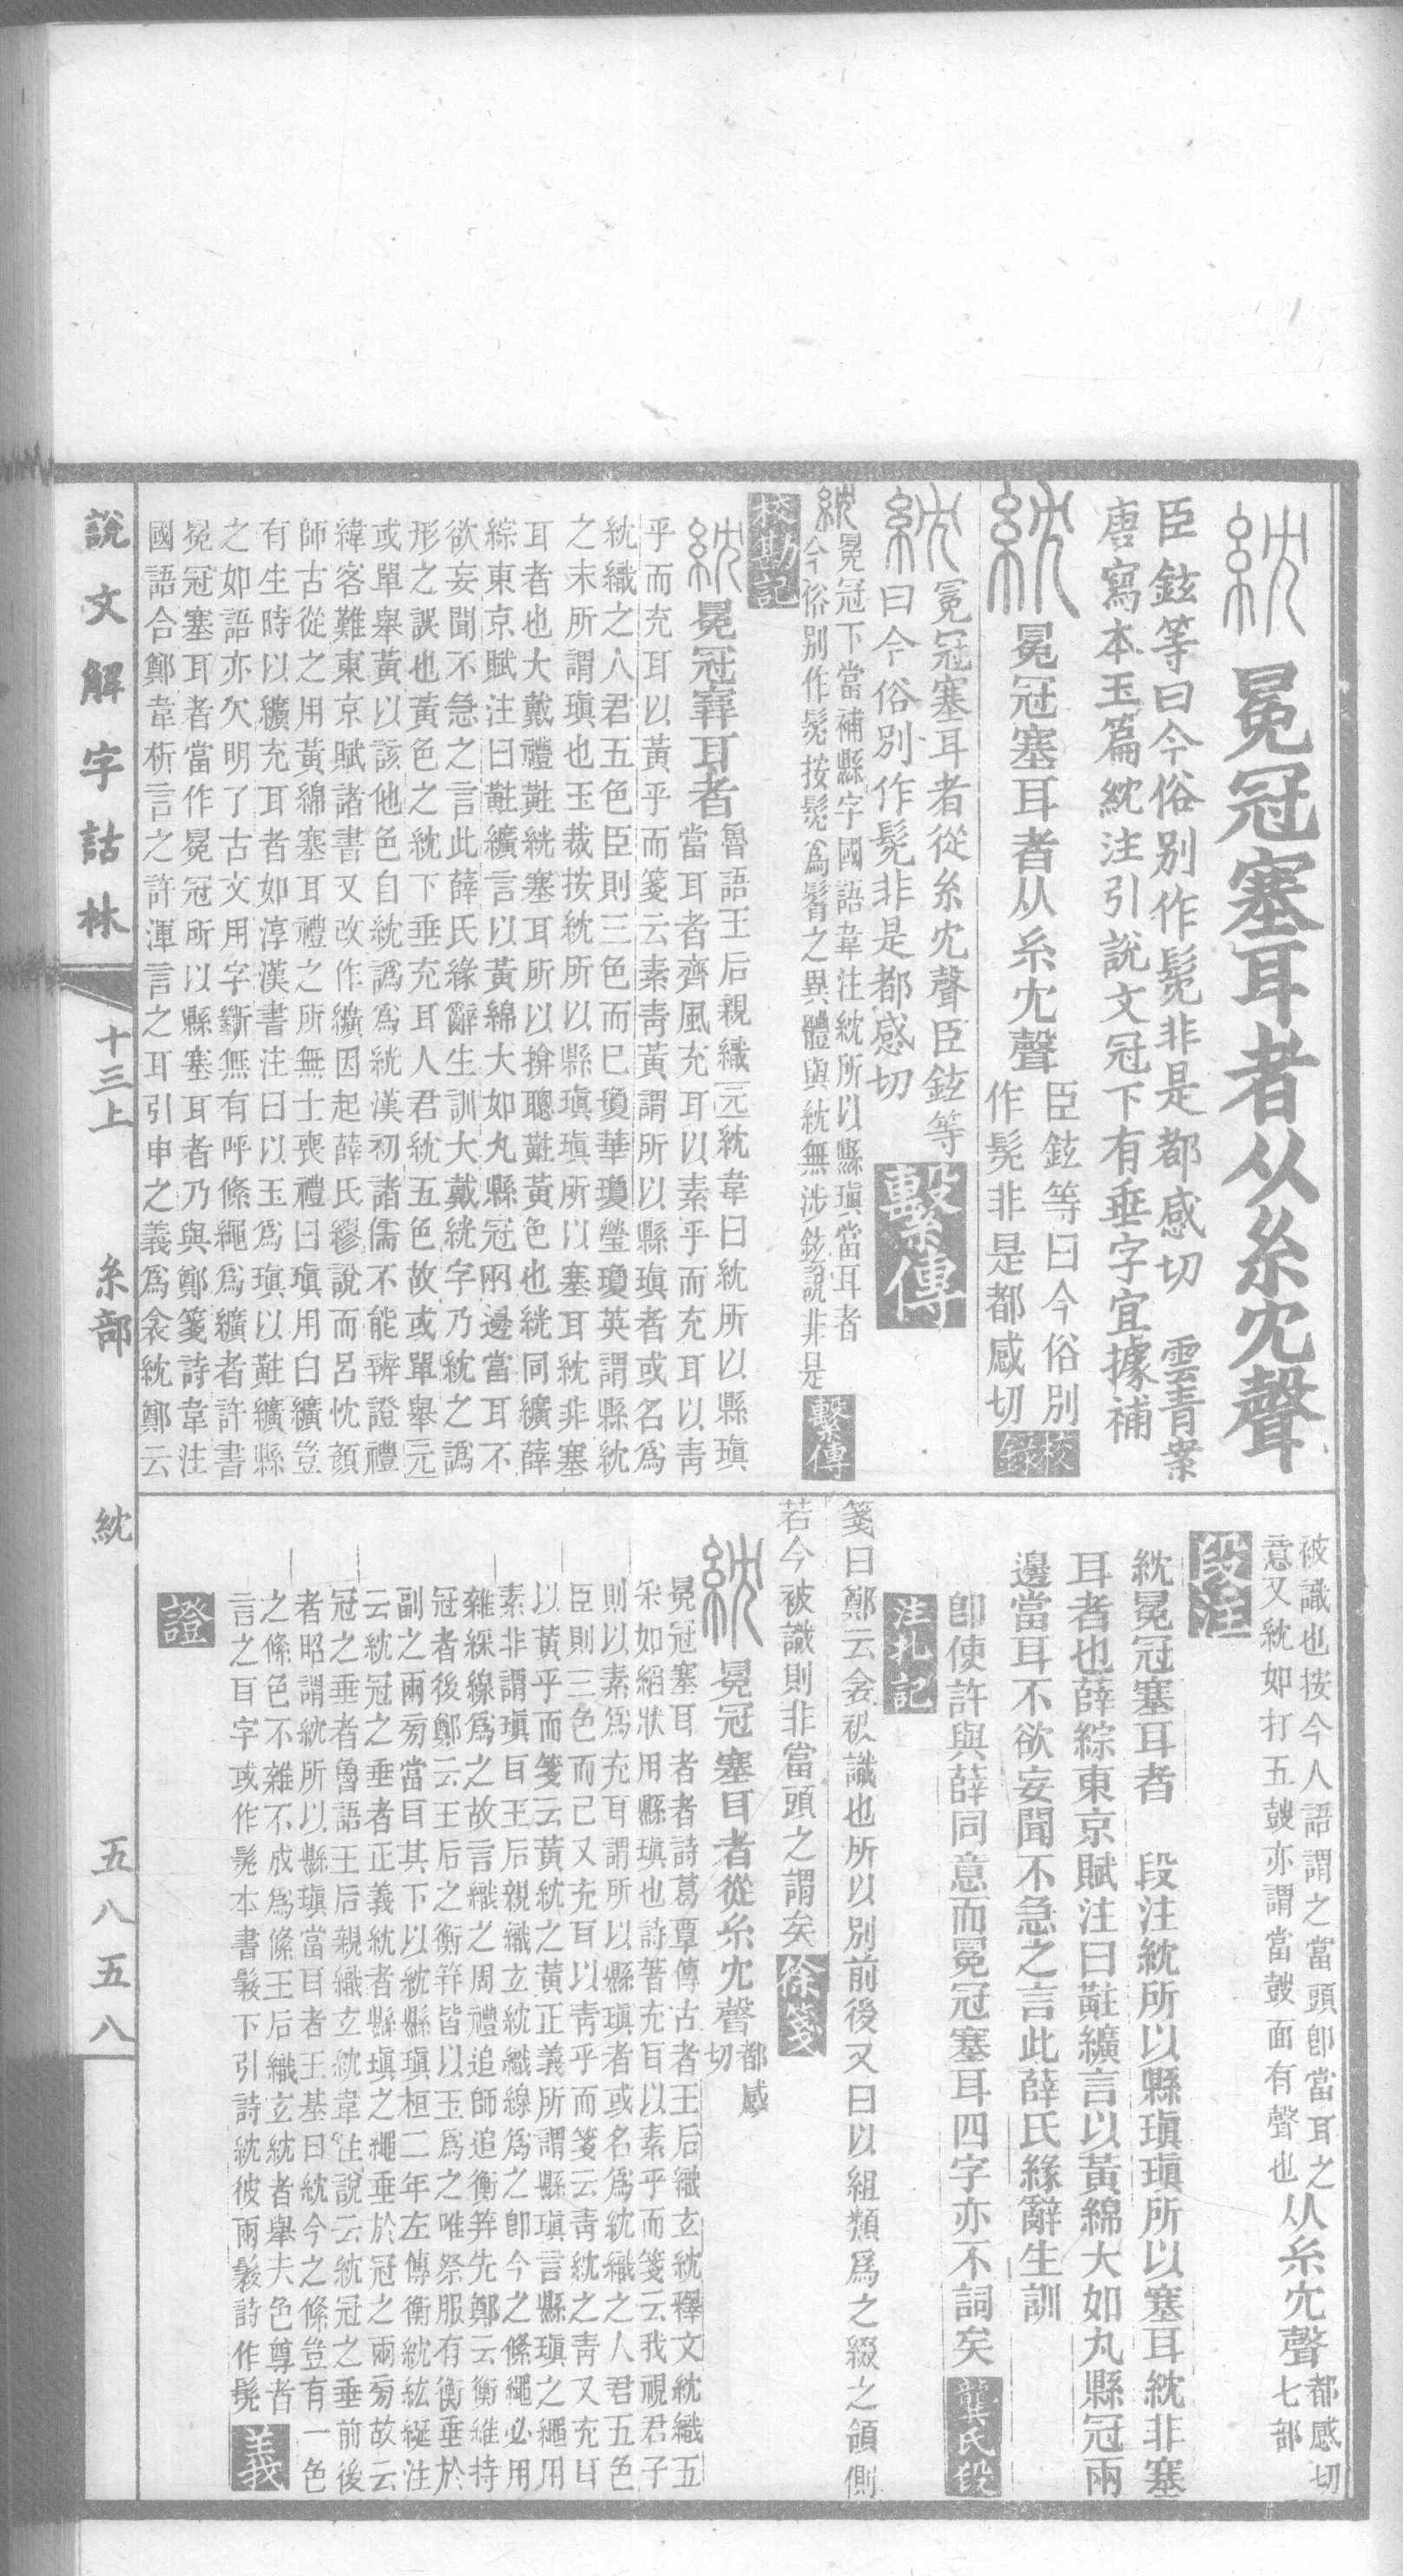 紞冕冠塞耳者从糸冘聲
臣鉉等曰今俗别作髧非是都感切　雲青案
唐寫本玉篇紞注引說文冠下有垂字宜據補
紞冕冠塞耳者从糸冘聲
臣鉉等曰今俗別
作髧非是都感切
校錄
紞冕冠塞耳者從糸冘聲臣鉉等
曰今俗別作髧非是都感切
繫傳
紞冕冠下當補縣字國語韋注紞所以縣瑱當耳者
今俗別作髧按髧爲髳之異體與紞無涉鉉說非是
繫傳
校勘記
紞冕冠𡫳耳者
魯語王后親織元紞韋曰紞所以縣瑱
當耳者齊風充耳以素乎而充耳以靑
乎而充耳以黃乎而箋云素靑黃謂所以縣瑱者或名爲
紞織之人君五色臣則三色而巳瓊華瓊瑩瓊英謂縣紞
之末所謂瑱也玉裁按紞所以縣瑱瑱所以塞耳紞非塞
耳者也大戴禮黈絖塞耳所以揜聰黈黃色也絖同纊薛
綜東京賦注曰黈纊言以黃綿大如丸縣冠兩邊當耳不
欲妄聞不急之言此薛氏緣辭生訓大戴絖字乃紞之譌
形之誤也黃色之紞下垂充耳人君紞五色故或單舉元
或單舉黃以該他色自紞譌爲絖漢初諸儒不能辨證禮
緯客難東京賦諸書又改作纊因起薛氏繆說而呂忱顏
師古從之用黃綿塞耳禮之所無士喪禮曰瑱用白纊豈
有生時以纊充耳者如淳漢書注曰以玉爲瑱以黈纊縣
之如語亦欠明了古文用字斷無有呼絛繩爲纊者許書
冕冠塞耳者當作冕冠所以縣塞耳者乃與鄭箋詩韋注
國語合鄭韋析言之許渾言之耳引申之義爲衾紞鄭云
被識也按今人語謂之當頭卽當耳之
意又紞如打五鼓亦謂當鼓面有聲也
从糸冘聲
都感切
七部
段注
紞冕冠塞耳者　段注紞所以縣瑱瑱所以塞耳紞非塞
耳者也薛綜東京賦注曰黈纊言以黃綿大如丸縣冠兩
邊當耳不欲妄聞不急之言此薛氏緣辭生訓
卽使許與薛同意而冕冠塞耳四字亦不詞矣
龔氏段
注札記
箋曰鄭云衾紞識也所以別前後又曰以組類爲之綴之領側
若今被識則非當頭之謂矣
徐箋
紞冕冠塞耳者從糸冘聲
都感
切
冕冠塞耳者者詩葛覃傳古者王后織玄紞釋文紞織五
采如縚狀用縣瑱也詩著充耳以素乎而箋云我視君子
則以素爲充耳謂所以縣瑱者或名爲紞織之人君五色
臣則三色而已又充耳以靑乎而箋云靑紞之靑又充耳
以黃乎而箋云黃紞之黃正義所謂縣瑱言縣瑱之繩用
素非謂瑱耳王后親織玄紞織線爲之卽今之絛繩必用
雜綵線爲之故言織之周禮追師追衡笄先鄭云衡維持
冠者後鄭云王后之衡笄皆以玉爲之唯祭服有衡垂於
副之兩旁當耳其下以紞縣瑱桓二年左傳衡紞紘綖注
云紞冠之垂者正義紞者縣瑱之繩垂於冠之兩旁故云
冠之垂者魯語王后親織玄紞韋注說云紞冠之垂前後
者昭謂紞所以縣瑱當耳者王基曰紞今之絛豈有一色
之絛色不雜不成爲絛王后織玄紞者舉夫色尊者
言之耳字或作髧本書髳下引詩紞彼兩髳詩作髧
義
證
說文解字詁林
十三上
糸部
紞
五八五八